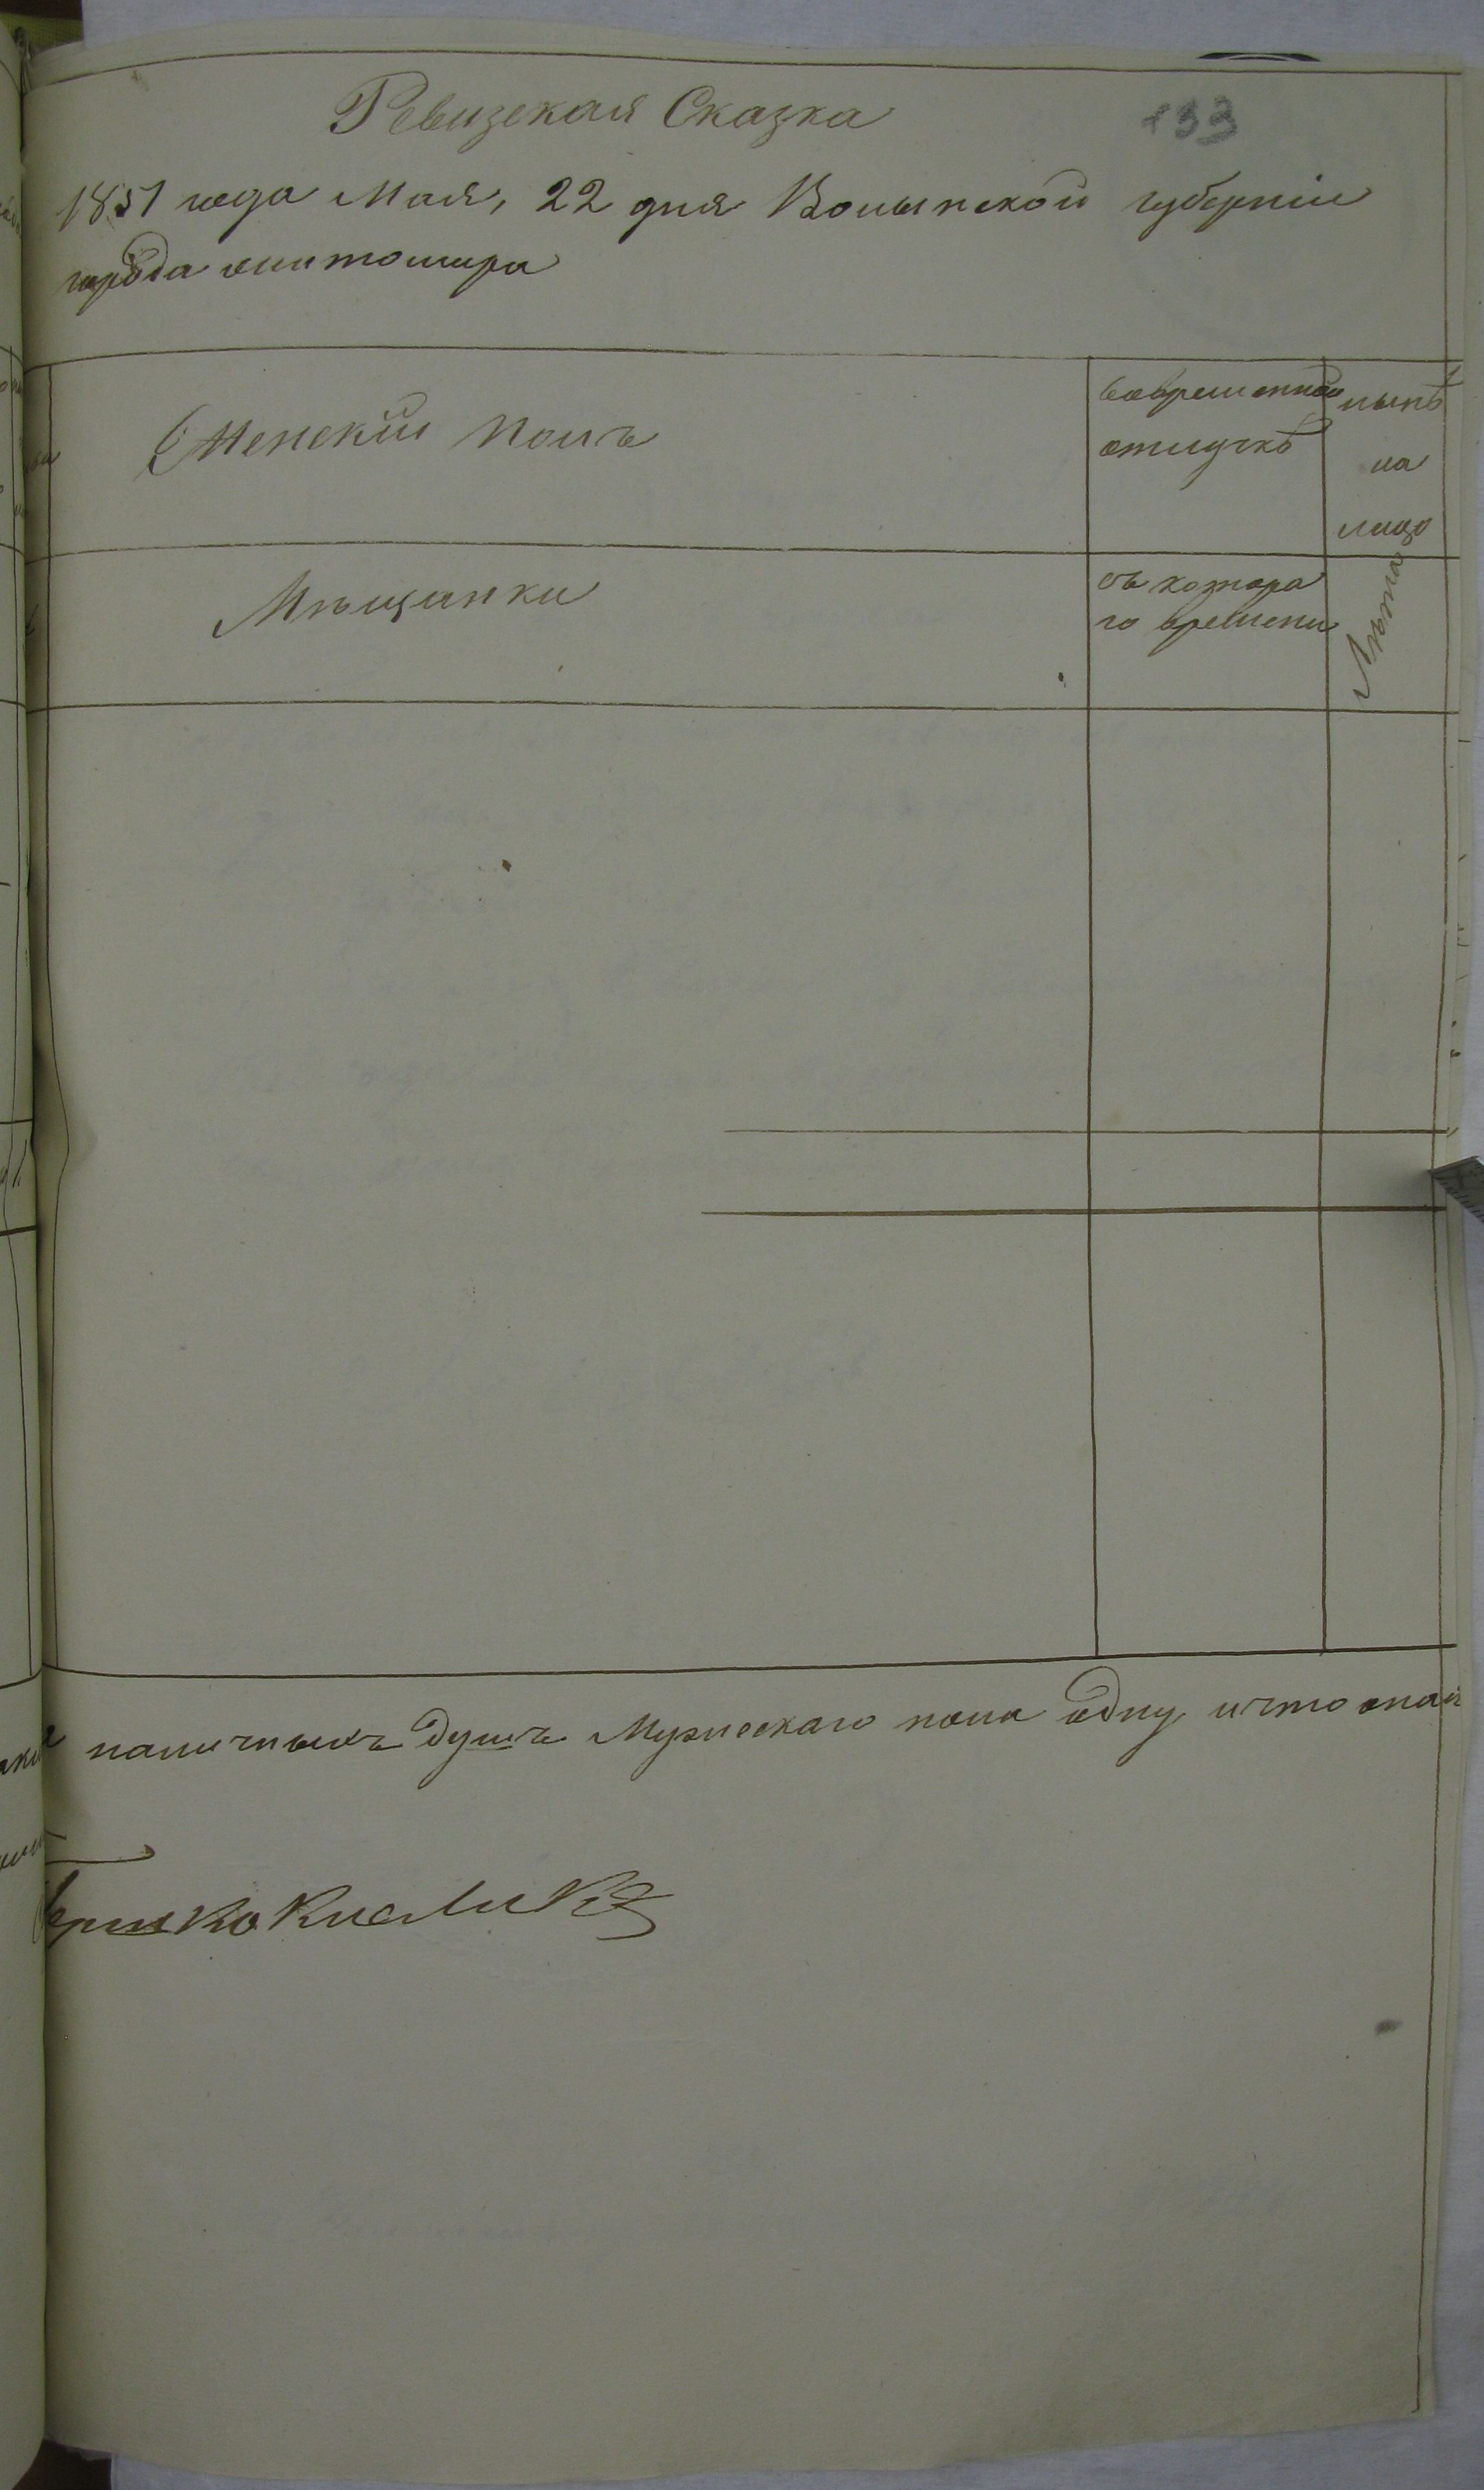 Ревизская Сказка
133
1851 года Мая, 22 дня Волынской губернiи
города житомира
Женскiй полъ
вовременной
отлучкѣ
нынѣ
на
лицо
Мѣщанки
съ котора
го времени
Лѣта
наличныхъ душъ Мужескаго пола одну ичто